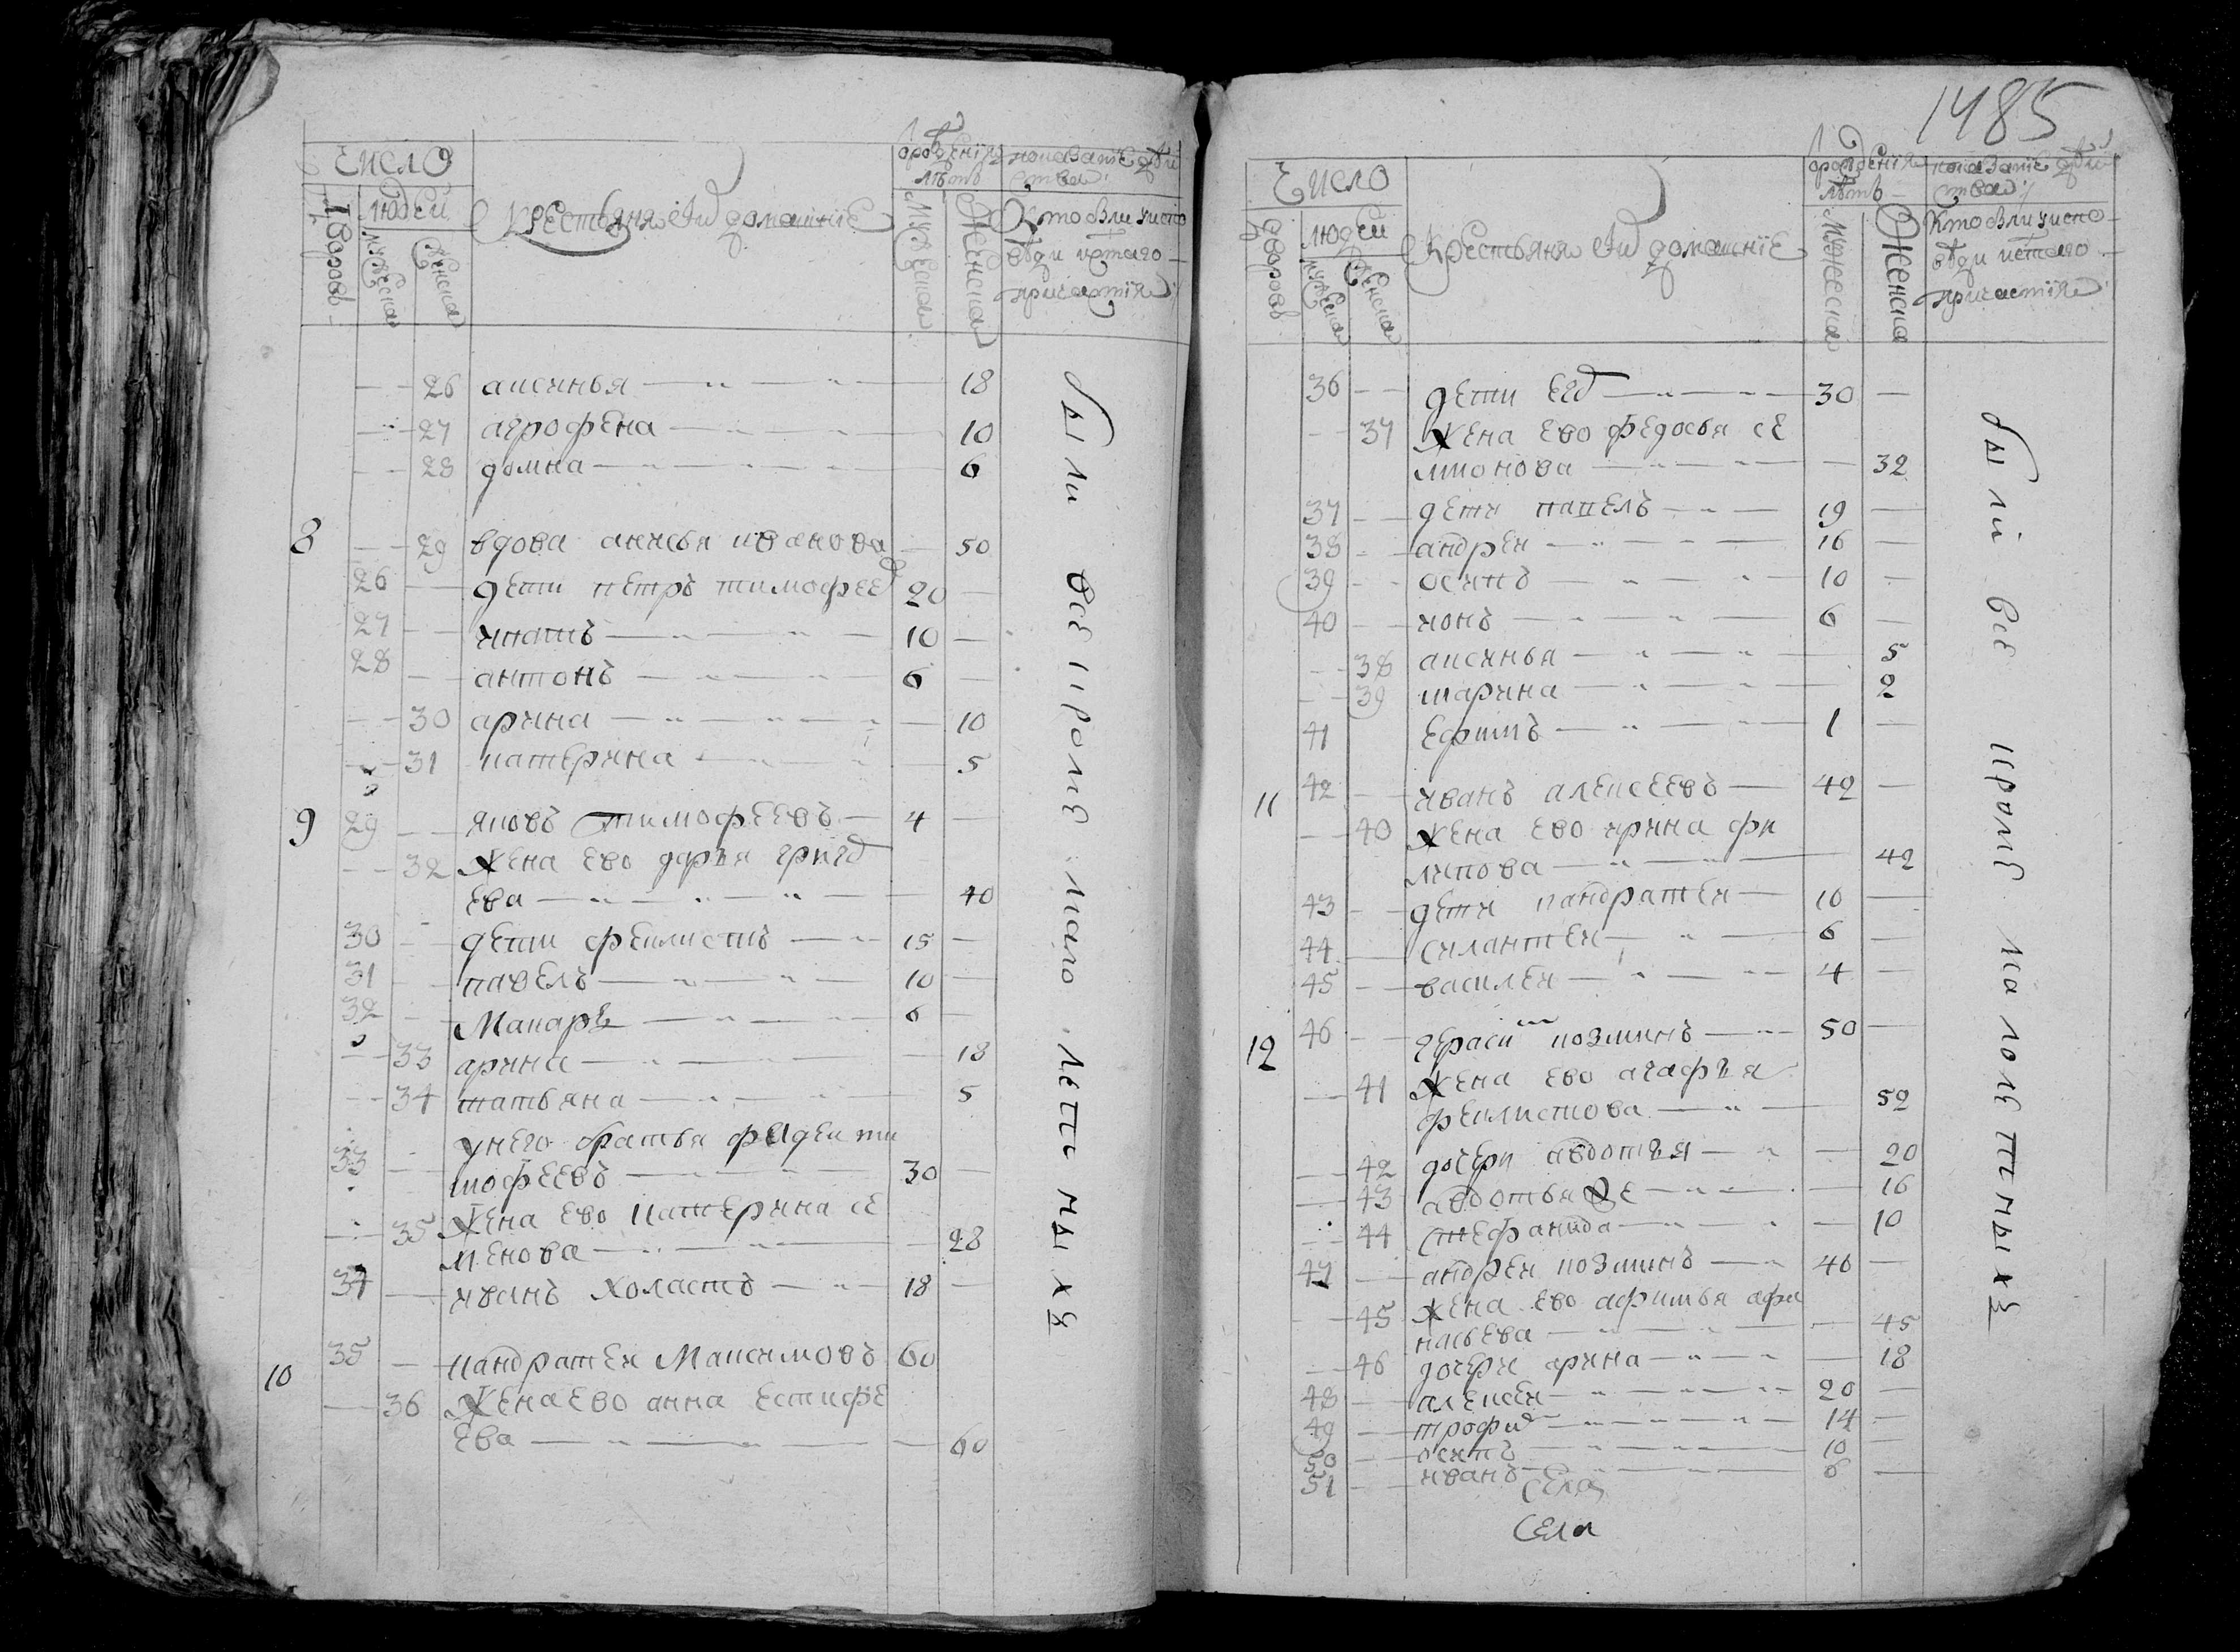 число
дворовъ
людей
мужеска
женска
крестьяня и ихъ домашніе
рожденія
лѣтъ
мужеска
женска
показаніе дѣй
ства
кто были у испо
вѣди и с̃таго
причастія
26 аксинья 18
27 агрофена 10
28 домна 6
8 29 вдова аксинья иванова 50
26 дети петръ тимофее 20
27 игнатъ 10
28 антонъ 6
30 арина 10
31 катерина 5
9 29 яковъ тимофеевъ 4
32 жена ево дарья григо
ева 40
30 дети феклистъ 15
31 павелъ 10
32 Макаръ 6
33 арина 18
34 татьяна 5
у него братья
33 мофеевъ 30
35 жена ево катерина се
менова 28
34 иванъ холастъ 18
10 35 кандратеи Максимовъ 60
36 жена ево анна естифе
ева 60
были все кроме мало летныхъ
1485
число
дворовъ
людей
мужеска
женска
крестьяня и ихъ домашніе
рожденія
лѣтъ
мужеска
женска
показаніе дѣй
ства
кто были у испо
вѣди и с̃таго
причастія
36 дети его 30
37 жена ево федосья се
мионова 32
37 дети павелъ 19
38 андреи 16
39 осипъ 10
40 ионъ 6
38 аксинья 5
39 марина 2
41 ефимъ 1
11 42 иванъ алексеевъ 42
40 жена ево ирина фи
липова 42
43 дети кандратеи 10
44 силантеи 6
45 василеи 4
12 46 герасим козминъ 50
41 жена ево агафья
феклистова 52
42 дочери авдотья 20
43 авдотья 16
44 стефанида 10
47 андреи козминъ 40
45 жена ево афимья афа
насьева 45
46 дочери арина 18
48 алексеи 20
49 трофи 14
50 осипъ 10
51 иванъ 6
села
села
были все кроме малолетныхъ